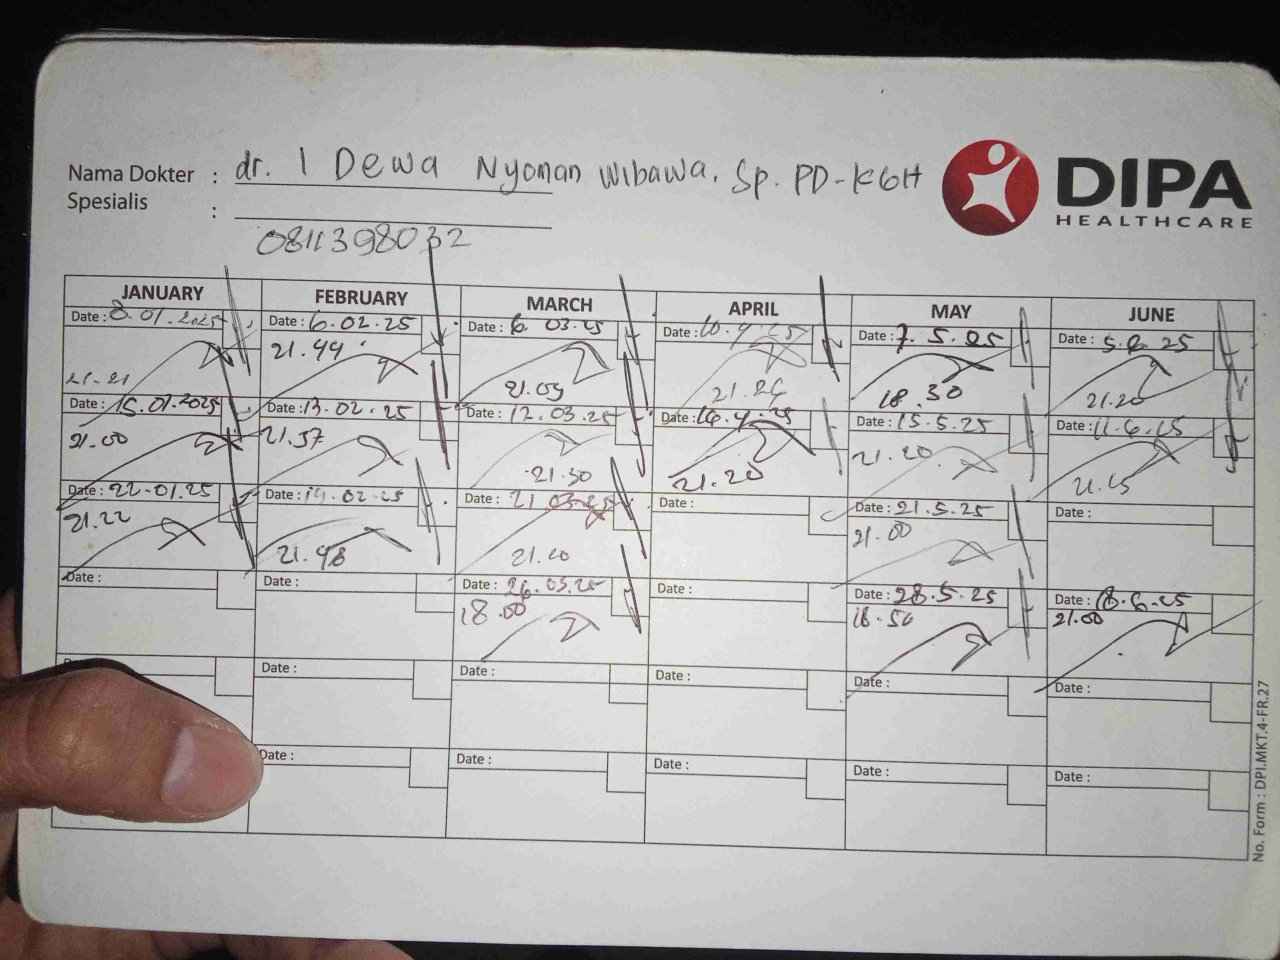 Nama Dokter : dr. I Dewa Nyoman Wibawa, Sp. PD-KGH
Spesialis :
0811398032
DIPA
HEALTHCARE
JANUARY FEBRUARY MARCH APRIL MAY JUNE
Date : 8.01.2025 Date : 6.02.25 Date : 6.03.25 Date : 10.4.25 Date : 7.5.25 Date : 5.6.25
21.21 21.44 21.05 21.24 18.30 21.20
Date : 15.01.2025 Date : 13.02.25 Date : 12.03.25 Date : 16.4.25 Date : 15.5.25 Date : 11.6.25
21.00 21.37 21.30 21.20 21.20 21.25
Date : 22.01.25 Date : 19.02.25 Date : 21.03.25 Date : Date : 21.5.25 Date :
21.22 21.48 21.20 21.00
Date : Date : Date : 26.03.25 Date : Date : 28.5.25 Date : 18.6.25
18.00 18.50 21.00
Date : Date : Date : Date : Date :
Date : Date : Date : Date : Date :
No. Form : DPI.MKT.4-FR.27